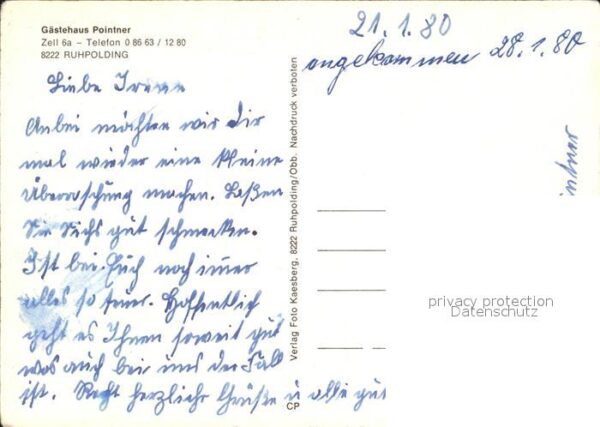 Gästehaus Pointner
Zell 6a – Telefon 0 86 63 / 12 80
8222 RUHPOLDING
21.1.80
angekommen 28.1.80
Liebe Irene
Anbei möchten wir dir
mal wieder eine kleine
Überraschung machen. Laßen
Sie Sichs gut schmecken.
Ist bei Euch noch imer
alles so teuer. Hoffentlich
geht es Ihnen soweit gut
was auch bei uns der Fall
ist. Recht herzliche Grüße u alle gut
Verlag Foto Kaesberg, 8222 Ruhpolding/Obb. Nachdruck verboten
CP
privacy protection
Datenschutz